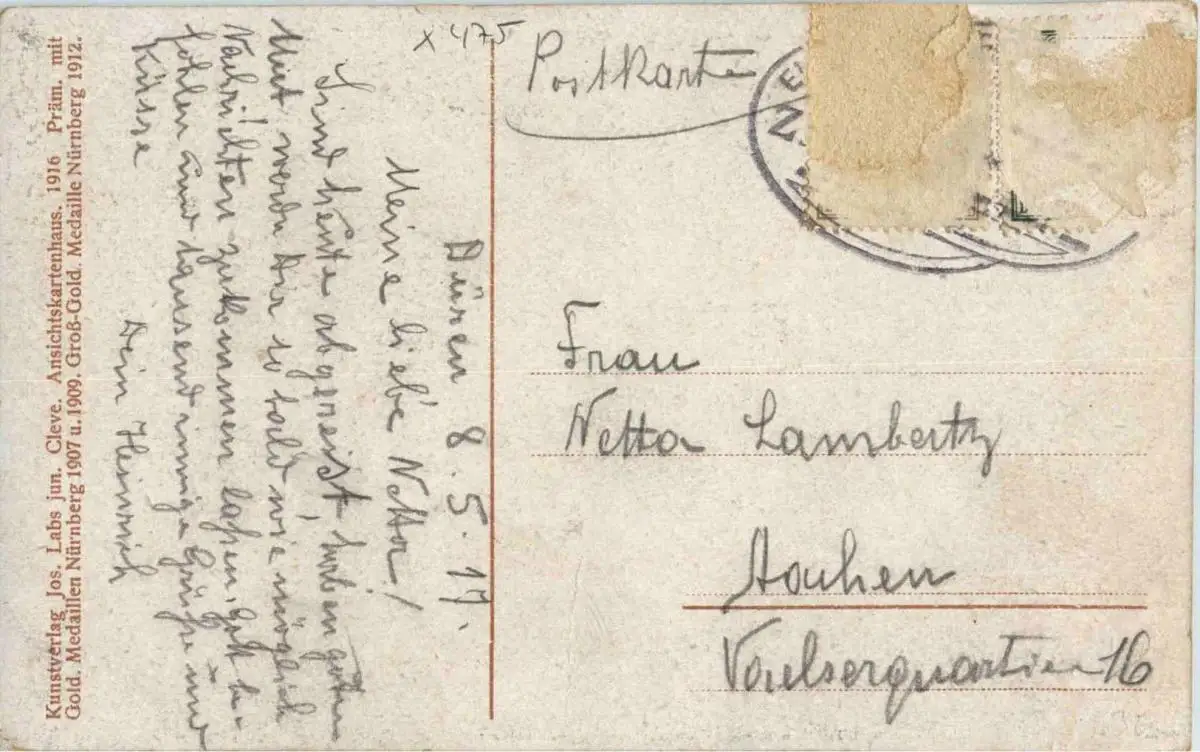 x 475
Postkarte
Düren 8.5.17.
Meine liebe Netta!
Sind heute abgereist, haben guten
Mut, werde Dir so bald wie möglich
Nachrichten zukommen laßen, Gott be-
fohlen und tausend innige Grüße und
Küsse
Dein Heinrich
Frau
Netta Lambertz
Aachen
Vaelserquartier 16
Kunstverlag Jos. Labs jun. Cleve. Ansichtskartenhaus. 1916 Präm. mit
Gold. Medaillen Nürnberg 1907 u. 1909. Groß-Gold. Medaille Nürnberg 1912.